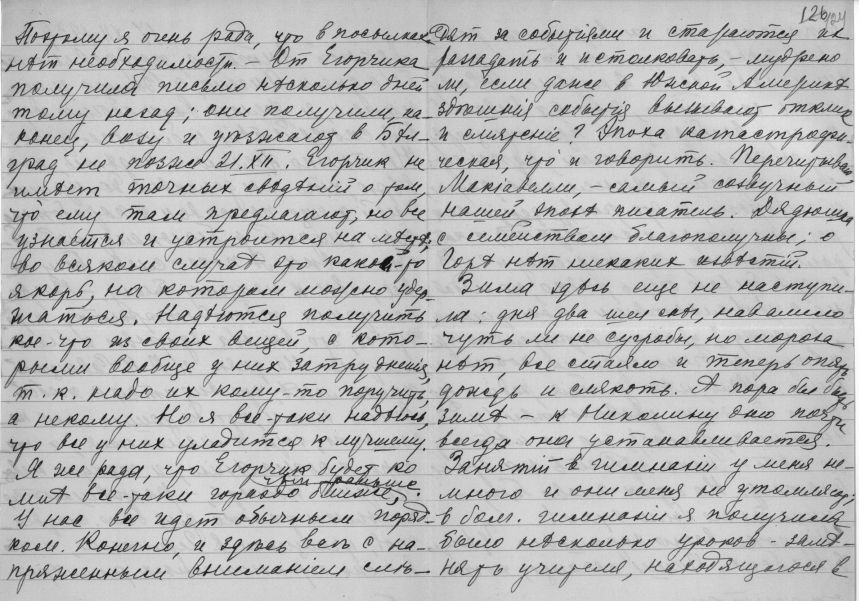 126/24
Поэтому я очень рада, что в посылках
нѣт необходимости. – От Егорчика
получила письмо нѣсколько дней
тому назад; они получили, на-
конец, визу и уѣзжают в Бѣл-
град не позже 21.XII. Егорчик не
имѣет точных свѣдѣній о том,
что ему там предлагают, но все
узнается и устроится на мѣстѣ;
во всяком случаѣ это какой-то
якорь, на котором можно удер-
жаться. Надѣются получить
кое-что из своих вещей с кото-
рыми вообще у них затрудненія,
т. к. надо их кому-то поручить,
а некому. Но я все-таки надѣюсь,
что все у них уладится к лучшему.
Я же рада, что Егорчик будет ко
мнѣ все-таки гораздо ближе, чѣм раньше.
У нас все идет обычным поряд-
ком. Конечно, и здѣсь всѣ с на-
пряженным вниманіем слѣ-
дят за событіями и стараются их
разгадать и истолковать, – мудрено
ли, если даже в Южной Америкѣ
здѣшнія событія вызывают отклик
и смятеніе? Эпоха катастрофи-
ческая, что и говорить. Перечитываю
Макіавелли, – самый созвучный
нашей эпохѣ писатель. Дядюшка
с семейством благополучны; о
Горѣ нѣт никаких извѣстій.
Зима здѣсь еще не наступи-
ла: дня два шел снѣг, навалило
чуть ли не сугробы, но мороза
нѣт, все стаяло и теперь опять
дождь и слякоть. А пора бы быть
зимѣ – к Николину дню почти
всегда она устанавливается.
Занятій в гимназіи у меня не-
много и они меня не утомляют;
в болг. гимназіи я получила
было нѣсколько уроков – замѣ-
нять учителя, находящагося в